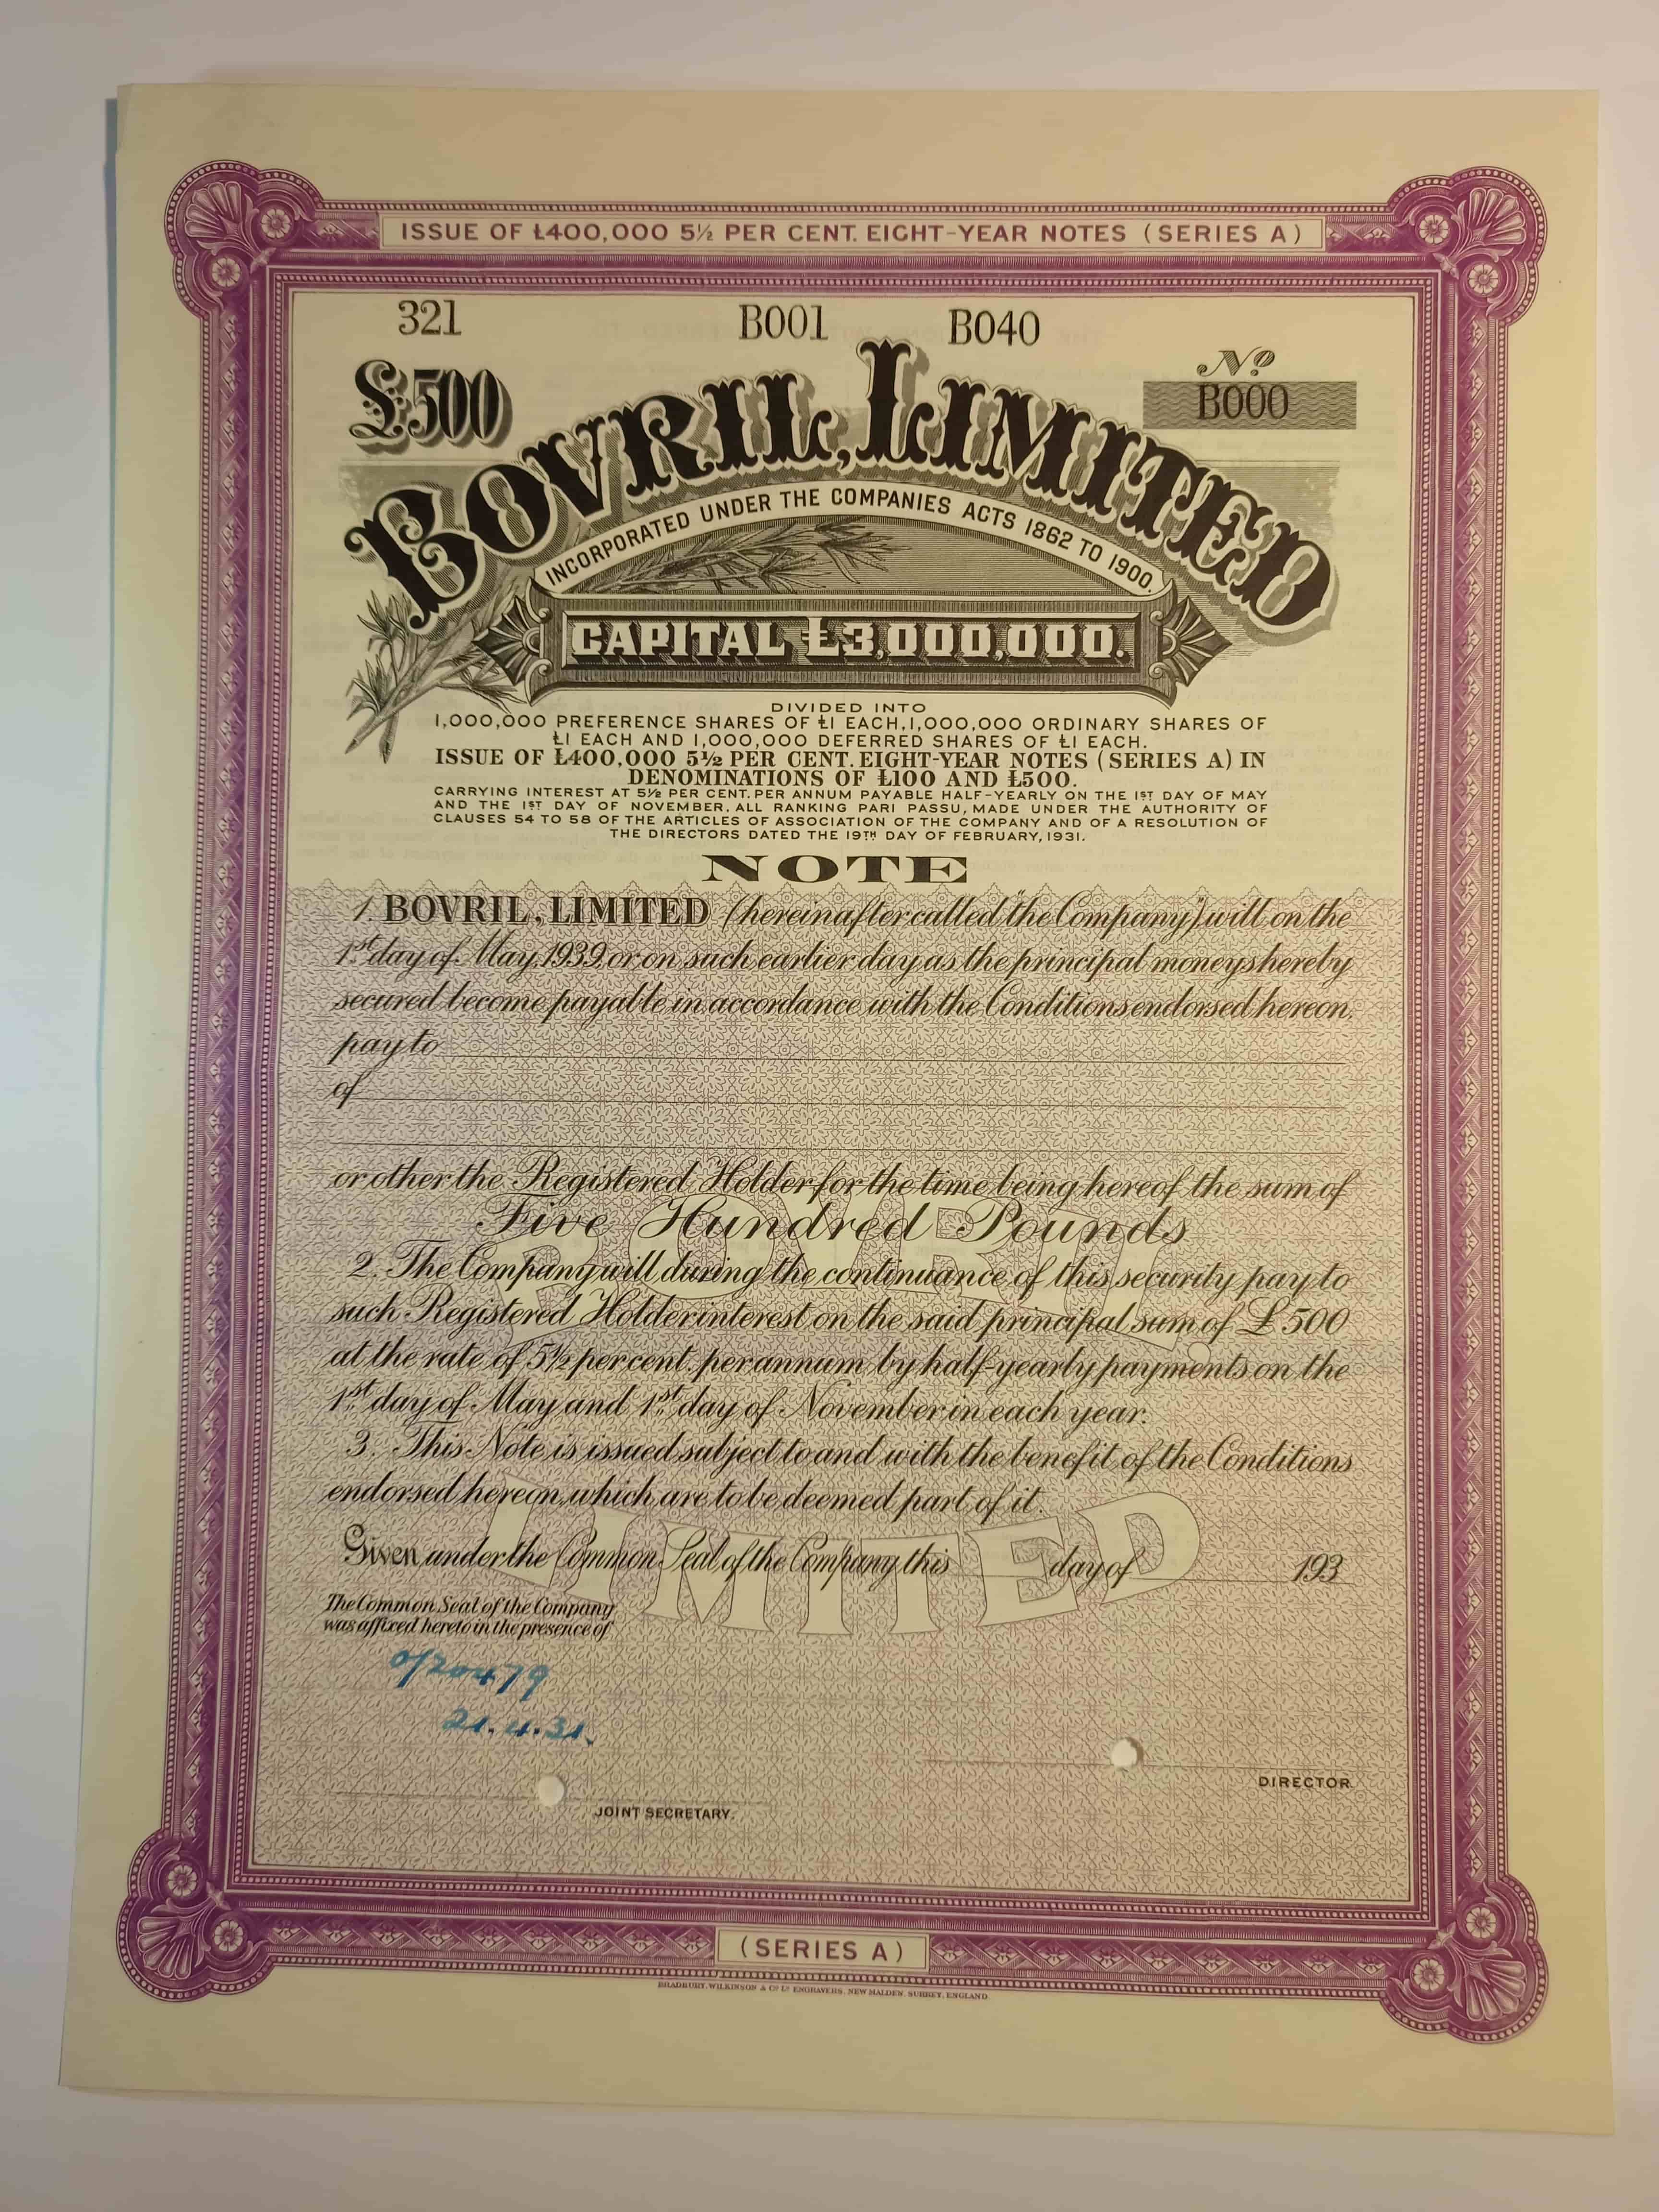 ISSUE OF £400,000 5½ PER CENT. EIGHT-YEAR NOTES (SERIES A)
321 B001 B040
£500 Nº
B000
BOVRIL, LIMITED
INCORPORATED UNDER THE COMPANIES ACTS 1862 TO 1900.
CAPITAL £3,000,000.
DIVIDED INTO
1,000,000 PREFERENCE SHARES OF £1 EACH, 1,000,000 ORDINARY SHARES OF
£1 EACH AND 1,000,000 DEFERRED SHARES OF £1 EACH.
ISSUE OF £400,000 5½ PER CENT. EIGHT-YEAR NOTES (SERIES A) IN
DENOMINATIONS OF £100 AND £500.
CARRYING INTEREST AT 5½ PER CENT. PER ANNUM PAYABLE HALF-YEARLY ON THE 1ST DAY OF MAY
AND THE 1ST DAY OF NOVEMBER. ALL RANKING PARI PASSU, MADE UNDER THE AUTHORITY OF
CLAUSES 54 TO 58 OF THE ARTICLES OF ASSOCIATION OF THE COMPANY AND OF A RESOLUTION OF
THE DIRECTORS DATED THE 19TH DAY OF FEBRUARY, 1931.
NOTE
1. BOVRIL, LIMITED (hereinafter called "the Company") will on the
1st day of May, 1939, or on such earlier day as the principal moneys hereby
secured become payable in accordance with the Conditions endorsed hereon,
pay to
of
or other the Registered Holder for the time being hereof the sum of
Five Hundred Pounds
2. The Company will during the continuance of this security pay to
such Registered Holder interest on the said principal sum of £500
at the rate of 5½ per cent. per annum by half-yearly payments on the
1st day of May and 1st day of November in each year.
3. This Note is issued subject to and with the benefit of the Conditions
endorsed hereon, which are to be deemed part of it.
BOVRIL,
LIMITED
Given under the Common Seal of the Company, this day of 193
The Common Seal of the Company
was affixed hereto in the presence of
0/20479
21.4.31.
DIRECTOR.
JOINT SECRETARY.
(SERIES A)
BRADBURY, WILKINSON & Cº Lº ENGRAVERS, NEW MALDEN, SURREY, ENGLAND.